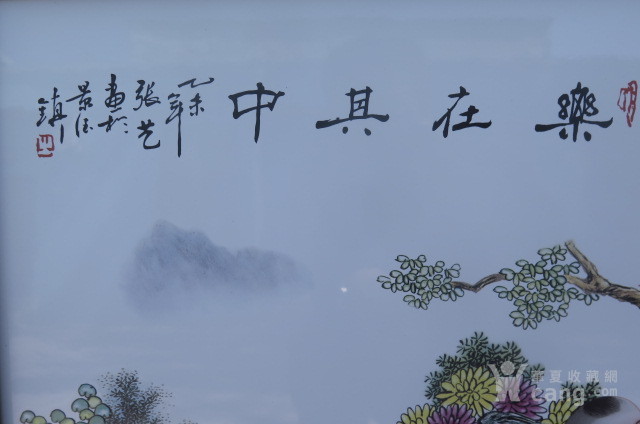 樂在其中
乙未年
張艺
畫於
景德
鎮
華夏收藏網